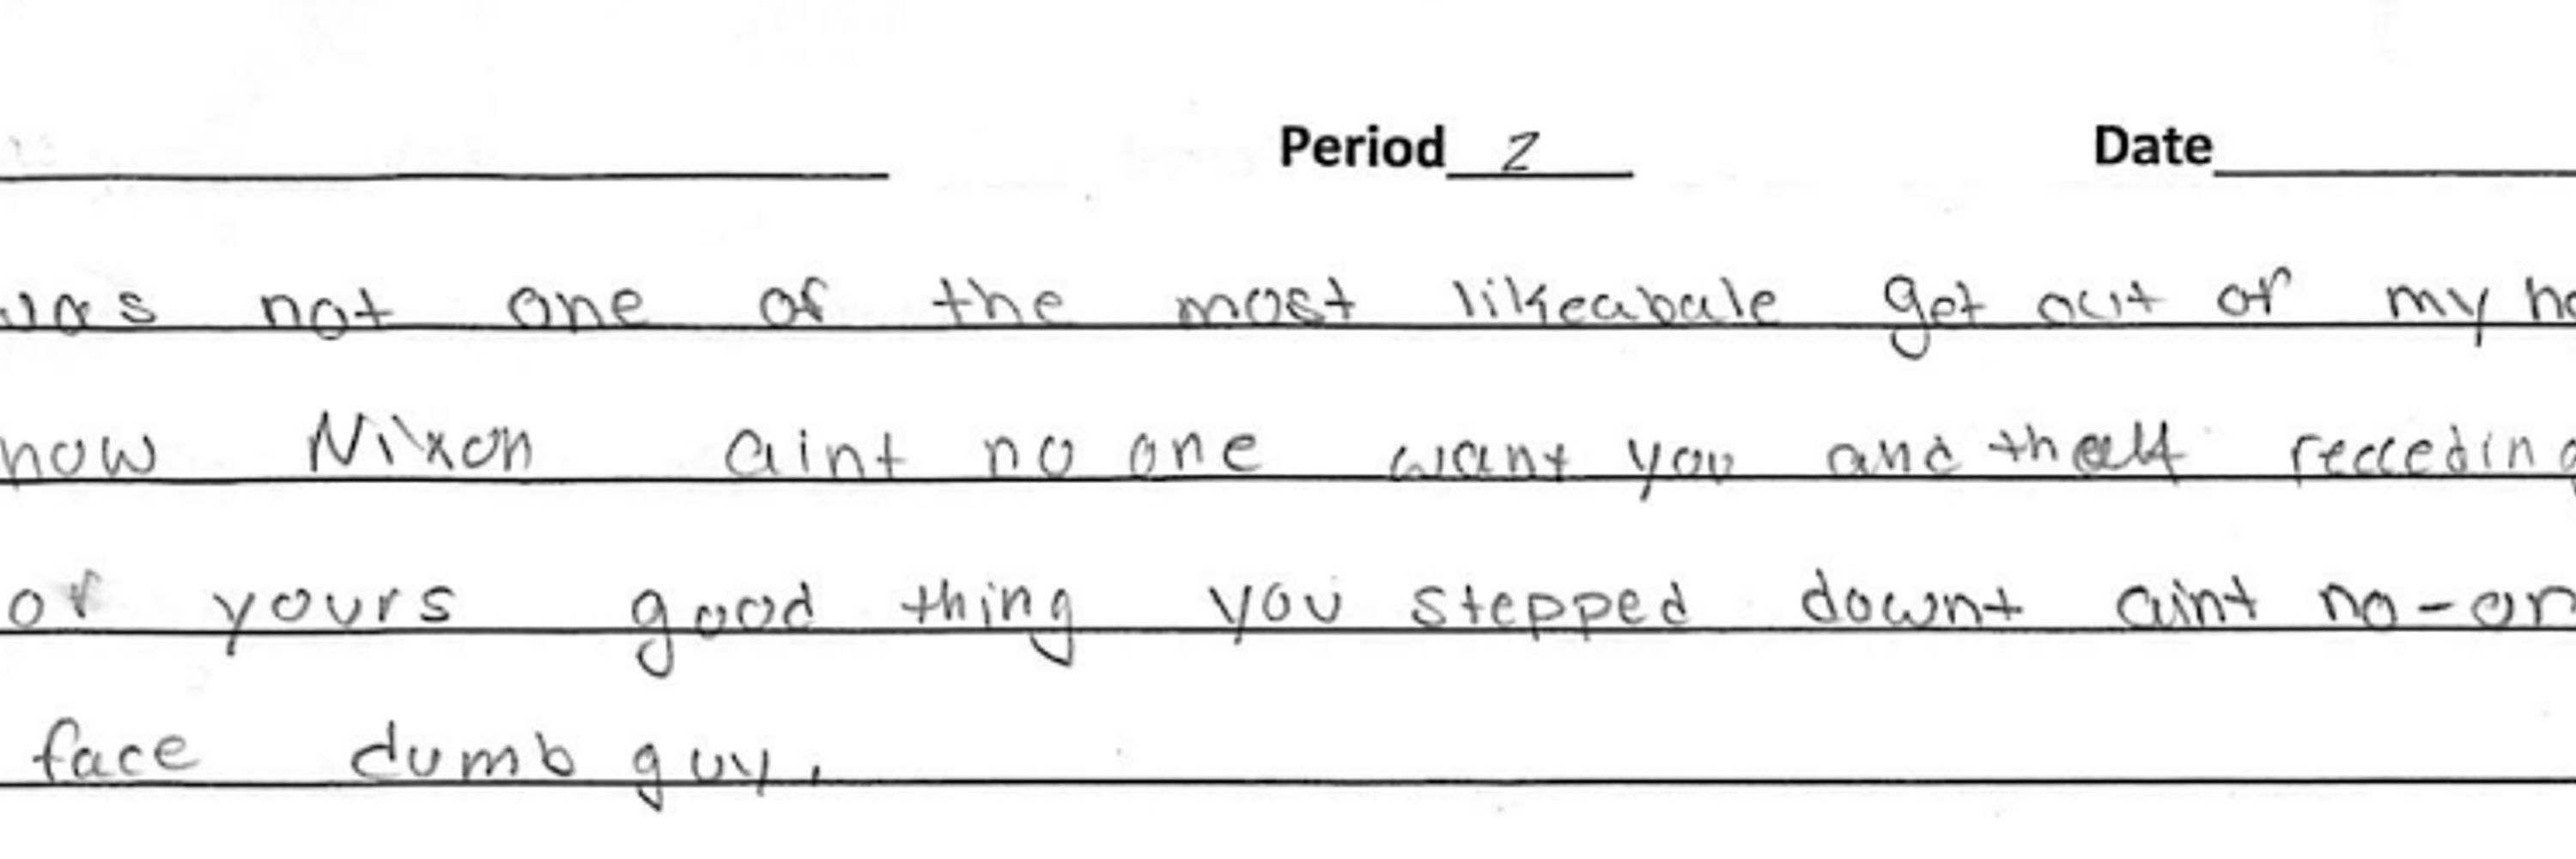 Period 2 Date
was not one of the most likeabule get out of my ho
now Nixon aint no one want you and that receeding
of yours good thing you stepped downt aint no-on
face dumb guy.